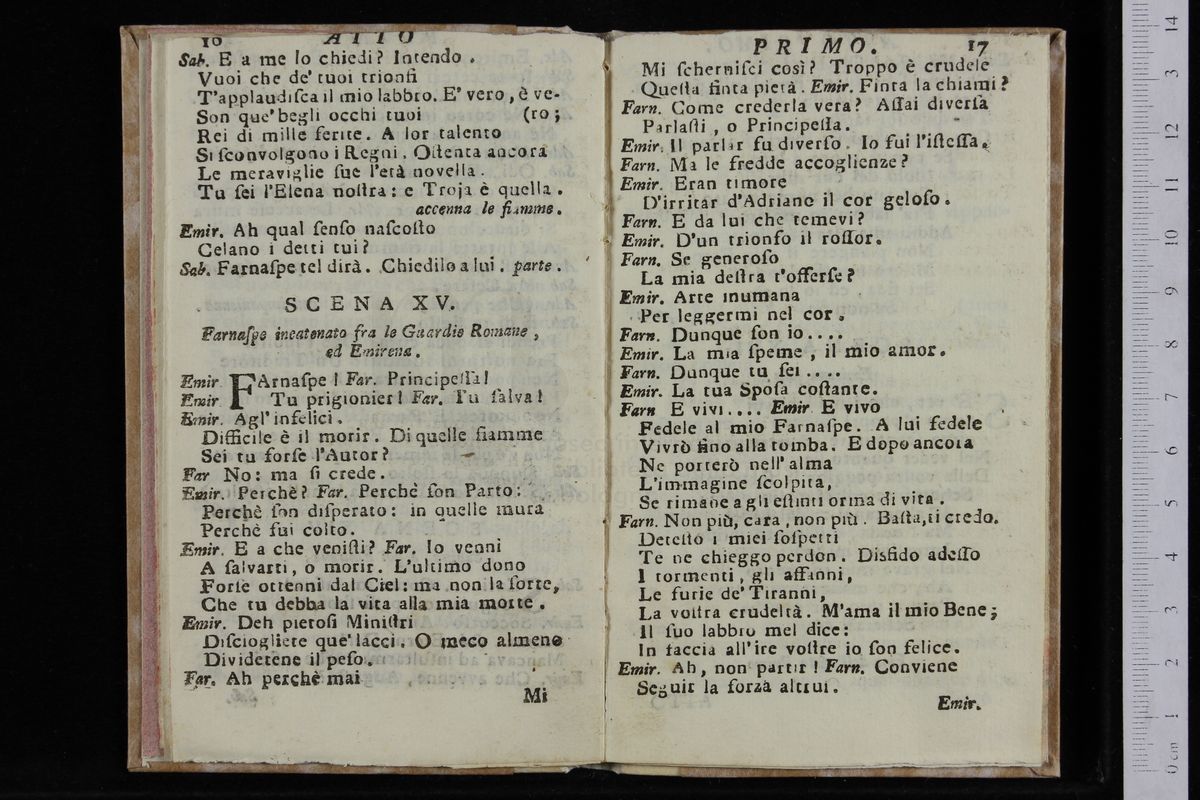 16 ATTO
Sab. E a me lo chiedi? Intendo.
Vuoi che de' tuoi trionfi
T'applaudiſca il mio labbro. E' vero, è ve-
Son que' begli occhi tuoi (ro;
Rei di mille ferite. A lor talento
Si ſconvolgono i Regni. Oſtenta ancora
Le meraviglie ſue l'età novella.
Tu ſei l'Elena noſtra: e Troja è quella.
accenna le fiamme.
Emir. Ah qual ſenſo naſcoſto
Celano i detti tui?
Sab. Farnaſpe tel dirà. Chiedilo a lui. parte.
SCENA XV.
Farnaſpe incatenato fra le Guardie Romane,
ed Emirena.
Emir. FArnaſpe! Far. Principeſſa!
Emir Tu prigionier! Far. Tu ſalva!
Emir. Agl' infelici.
Difficile è il morir. Di quelle fiamme
Sei tu forſe l'Autor?
Far No: ma ſi crede.
Emir. Perchè? Far. Perchè ſon Parto:
Perchè ſon diſperato: in quelle mura
Perchè fui colto.
Emir. E a che veniſti? Far. Io venni
A ſalvarti, o morir. L'ultimo dono
Forſe ottenni dal Ciel: ma non la ſorte,
Che tu debba la vita alla mia morte.
Emir. Deh pietoſi Miniſtri
Diſciogliete que' lacci. O meco almeno
Dividetene il peſo.
Far. Ah perchè mai
Mi
PRIMO. 17
Mi ſcherniſci così? Troppo è crudele
Queſta finta pietà. Emir. Finta la chiami?
Farn. Come crederla vera? Aſſai diverſa
Parlaſti, o Principeſſa.
Emir. Il parlar fu diverſo. Io fui l'iſteſſa.
Farn. Ma le fredde accoglienze?
Emir. Eran timore
D'irritar d'Adriano il cor geloſo.
Farn. E da lui che temevi?
Emir. D'un trionfo il roſſor.
Farn. Se generoſo
La mia deſtra t'offerſe?
Emir. Arte inumana
Per leggermi nel cor.
Farn. Dunque ſon io....
Emir. La mia ſpeme, il mio amor.
Farn. Dunque tu ſei....
Emir. La tua Spoſa coſtante.
Farn E vivi.... Emir E vivo
Fedele al mio Farnaſpe. A lui fedele
Vivrò fino alla tomba. E dopo ancora
Ne porterò nell' alma
L'immagine ſcolpita,
Se rimane a gli eſtinti orma di vita.
Farn. Non più, cara, non più. Baſta, ti credo.
Deteſto i miei ſoſpetti
Te ne chieggo perdon. Disfido adeſſo
I tormenti, gli affanni,
Le furie de' Tiranni,
La voſtra crudeltà. M'ama il mio Bene;
Il ſuo labbro mel dice:
In faccia all'ire voſtre io ſon felice.
Emir. Ah, non partir! Farn. Conviene
Seguir la forza altrui.
Emir.
0 cm 1 2 3 4 5 6 7 8 9 10 11 12 13 14